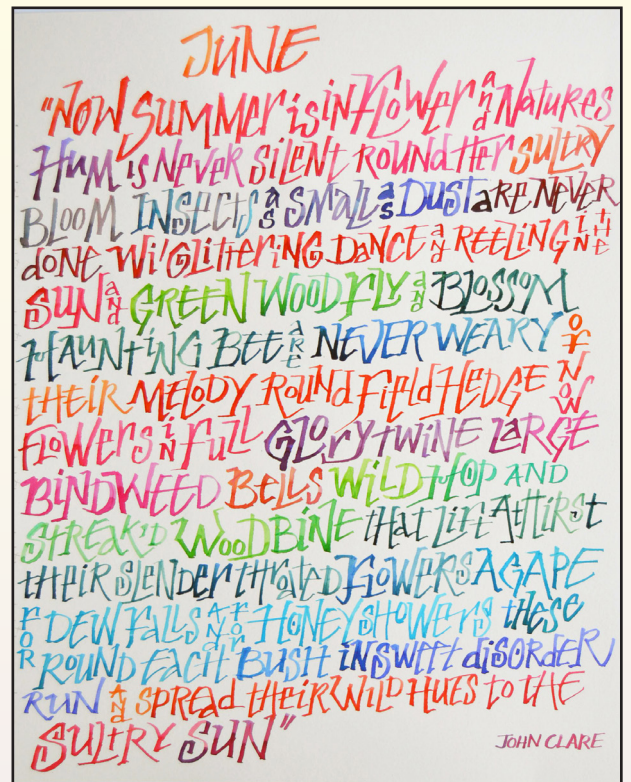 JUNE
"NOW SUMMER is iN FLOWER and Natures
HUM is NEVER SILENT ROUND HER SULTRY
BLOOM INSECTS as SMALL as DUST aRE NEVER
dONE Wi' GLITTERING DANCE and REELING IN tHE
SUN and GREEN WOOD FLY and BLOSSOM
HAUNTING BEE ARE NEVER WEARY OF
tHEiR MELODY ROUNd FiELd HEDGE NOW
FLOWERS iN FULL GLORy tWiNE LARGE
BiNDWEED BELLS WILD HOP AND
STREAK'D WOODBINE tHAT LiFt AtHIRSt
tHEIR SLENDER tHROAtED FLOWERS AGAPE
FOR DEW FALLS AND FOR HONEY SHOWERS tHESE
ROUND EACH BUSH iN SWEET diSORDER
RUN ANd SPREAd tHEIR WILD HUES tO tHE
SULTRY SUN"
JOHN CLARE